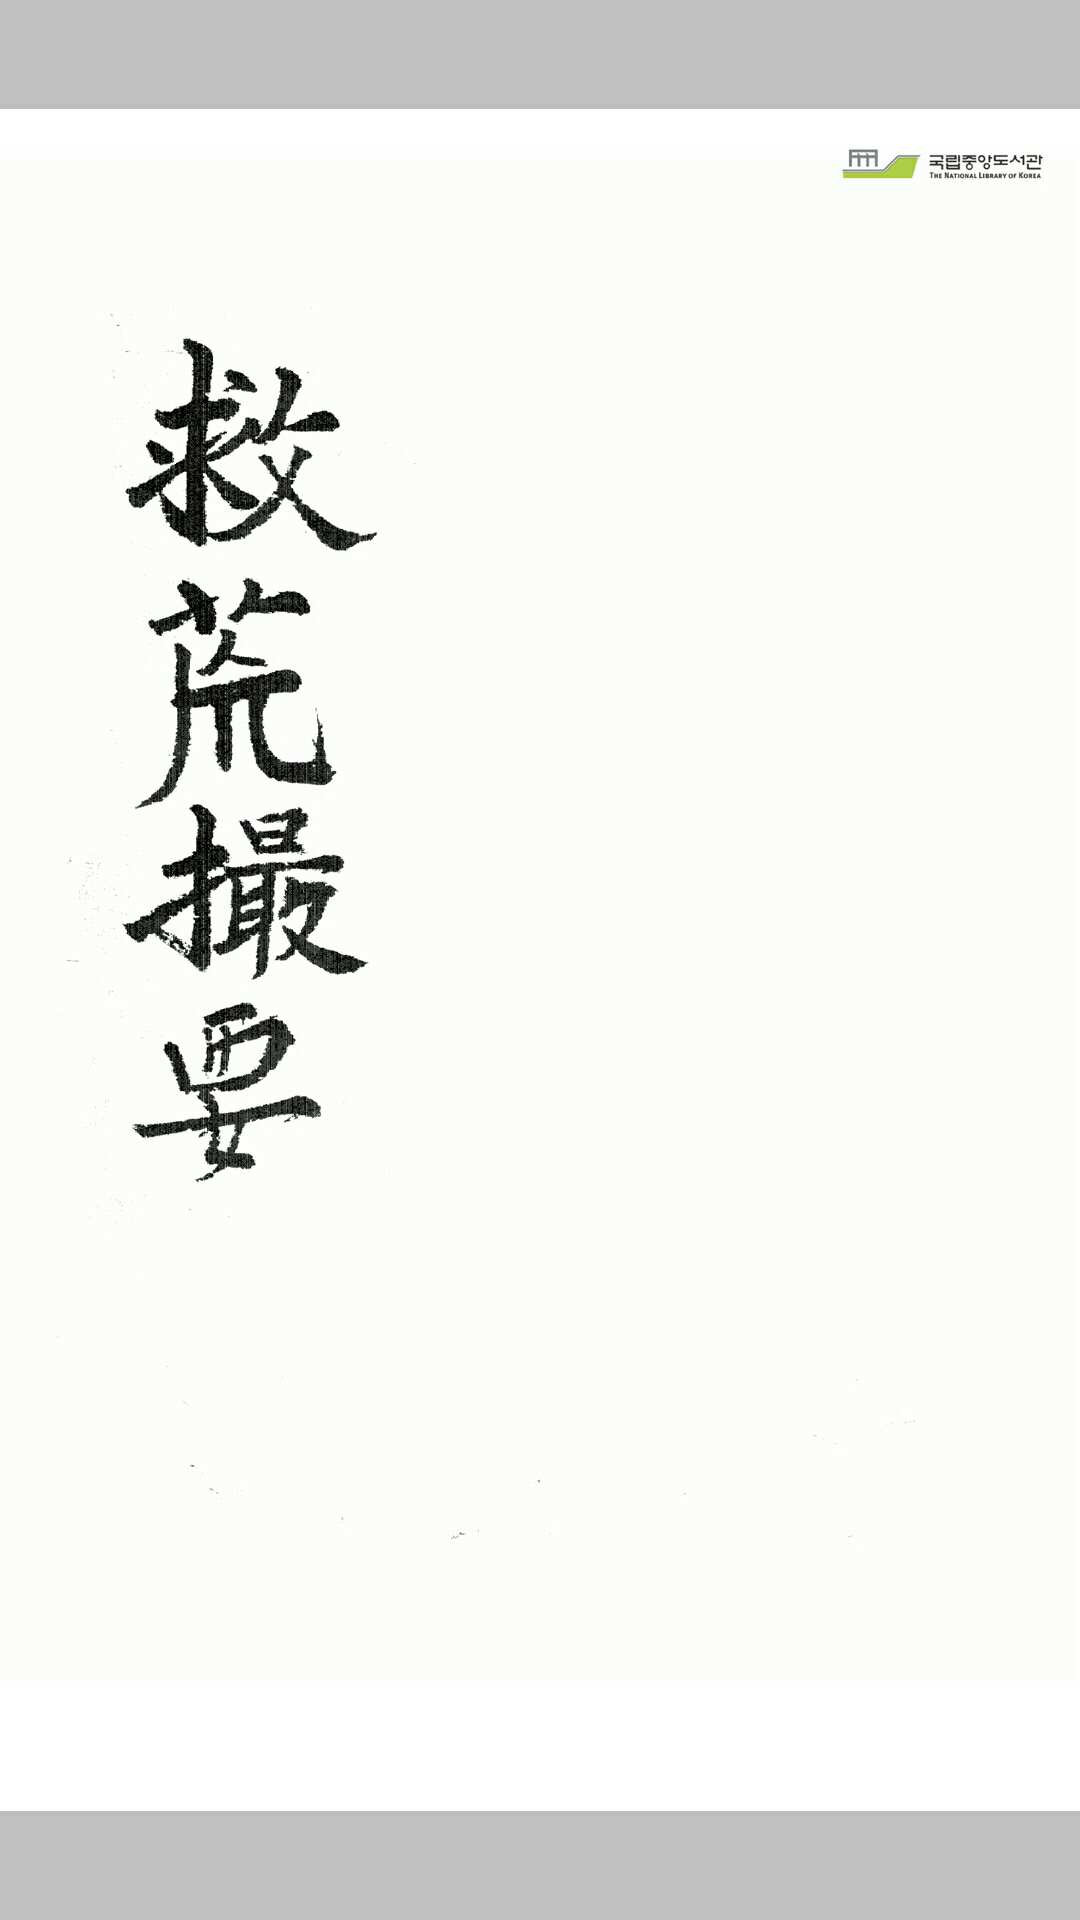 국립중앙도서관
THE NATIONAL LIBRARY OF KOREA
救荒撮要